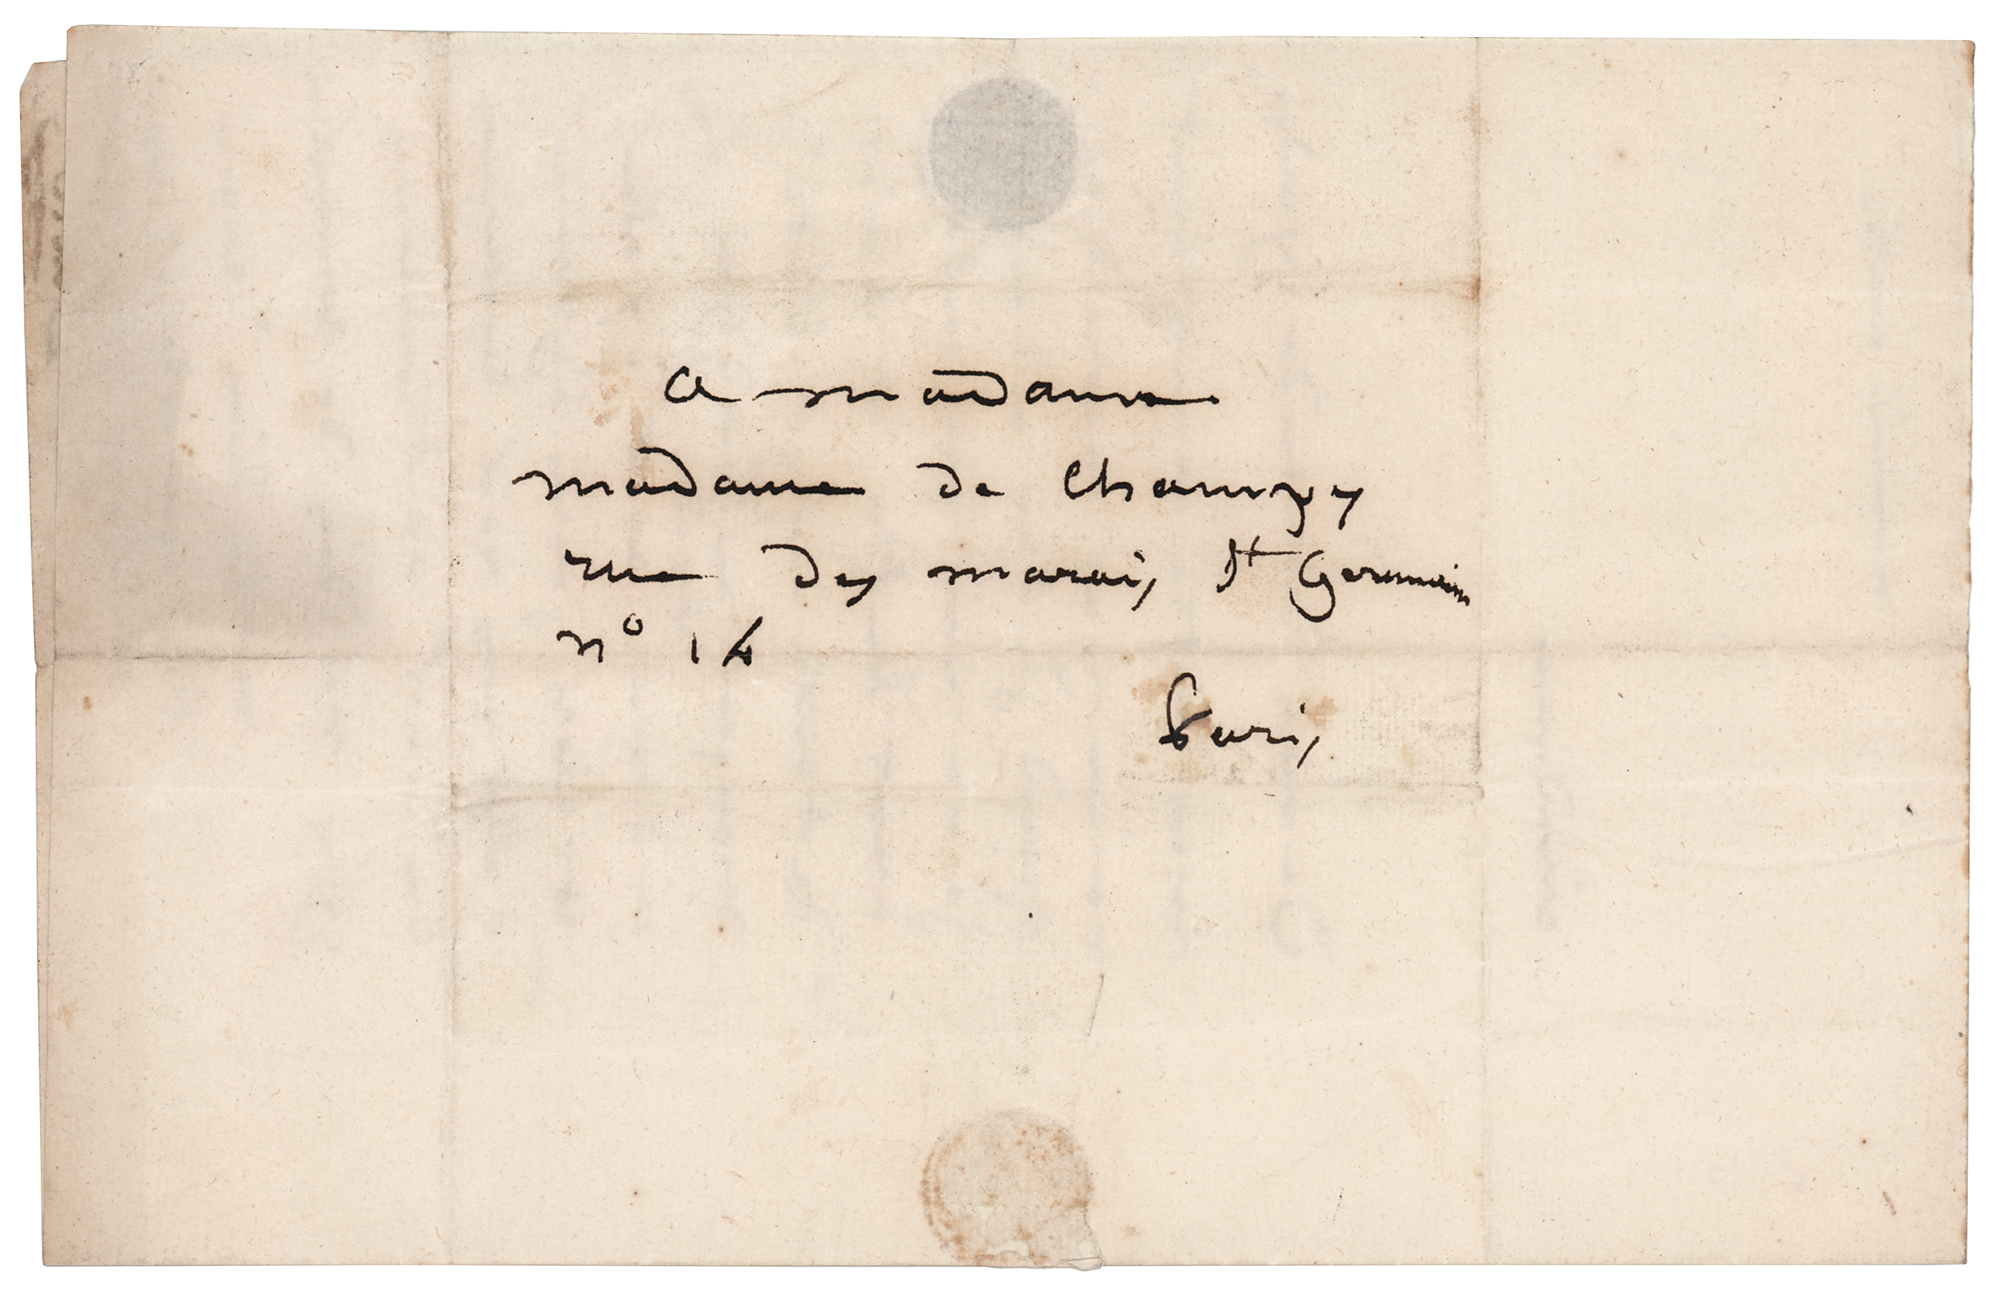 a madame
madame de Champy
rue des marais St Germain
n° 14
Paris